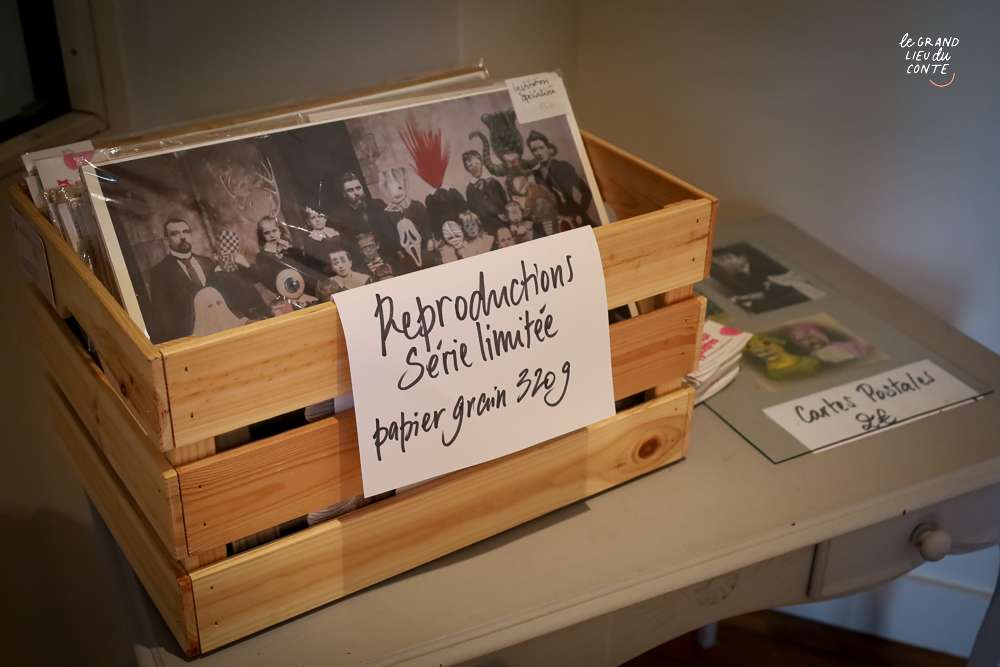 le GRAND
LIEU du
CONTE
Reproductions
Série limitée
papier grain 320g
Cartes Postales
2€